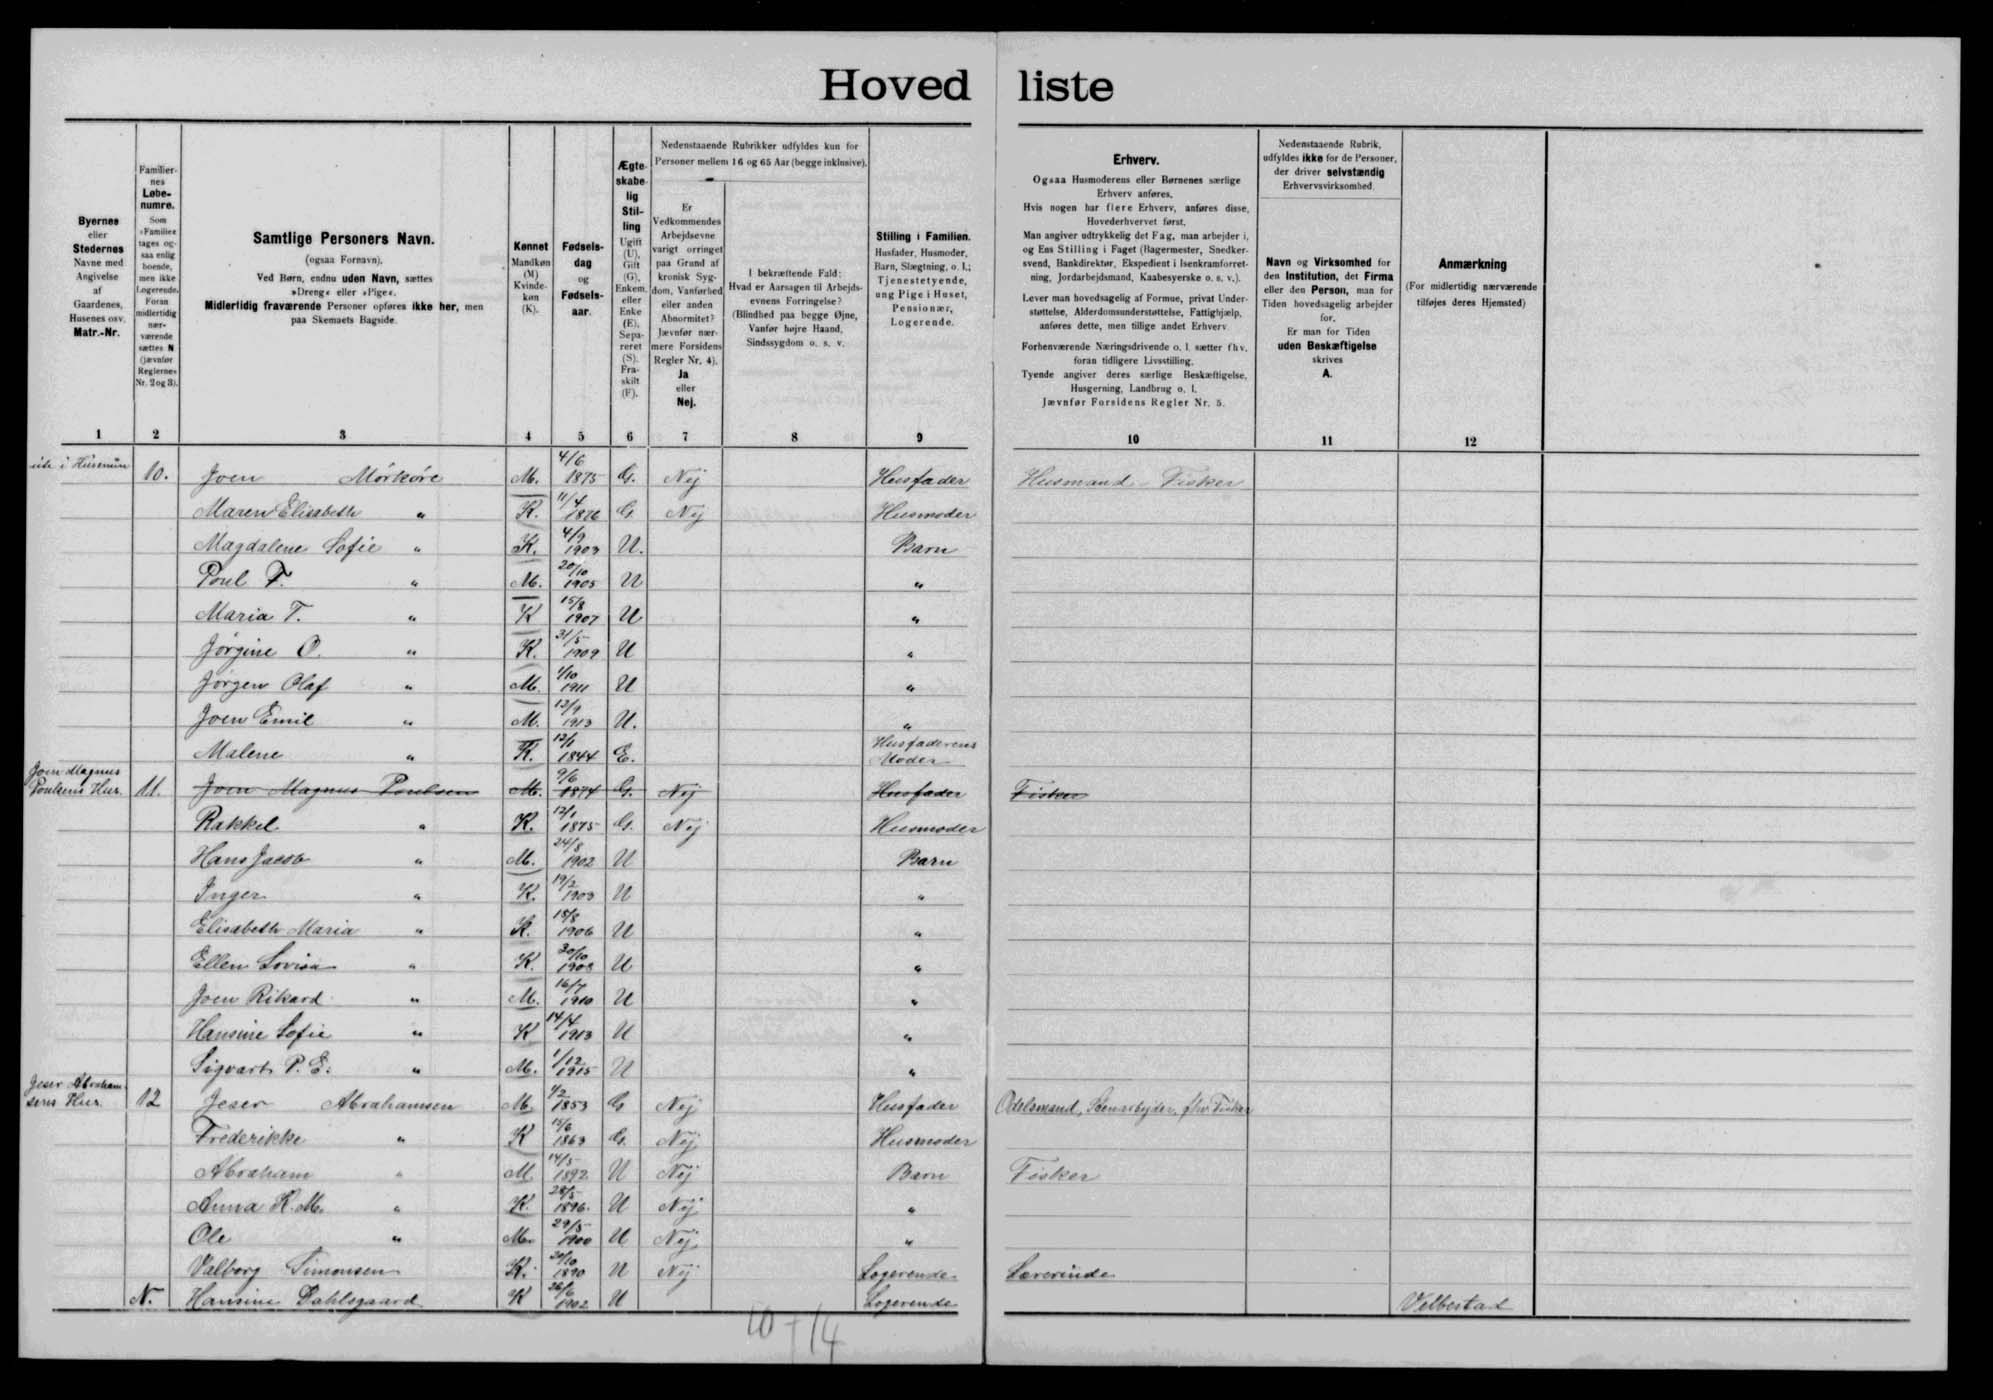 Hovedliste
Byernes eller Stedernes Navne med Angivelse af Gaardenes, Husenes osv. Matr.-Nr.
Familiernes Løbenumre. Som »Familie« tages ogsaa enlig boende, men ikke Logerende. Foran midlertidig nærværende sættes N (jævnfør Reglernes Nr. 2 og 3).
Samtlige Personers Navn. (ogsaa Fornavn). Ved Børn, endnu uden Navn, sættes »Dreng« eller »Pige«. Midlertidig fraværende Personer opføres ikke her, men paa Skemaets Bagside.
Kønnet Mandkøn (M) Kvindekøn (K).
Fødselsdag og Fødselsaar.
Ægteskabelig Stilling Ugift (U), Gift (G), Enkem. eller Enke (E), Separeret (S), Fraskilt (F).
Nedenstaaende Rubrikker udfyldes kun for Personer mellem 16 og 65 Aar (begge inklusive).
Er Vedkommendes Arbejdsevne varigt forringet paa Grund af kronisk Sygdom, Vanførhed eller anden Abnormitet? Jævnfør nærmere Forsidens Regler Nr. 4). Ja eller Nej.
I bekræftende Fald: Hvad er Aarsagen til Arbejdsevnens Forringelse? (Blindhed paa begge Øjne, Vanfør højre Haand, Sindssygdom o. s. v.
Stilling i Familien. Husfader, Husmoder, Barn, Slægtning, o. l.; Tjenestetyende, ung Pige i Huset, Pensionær, Logerende.
Erhverv.
Ogsaa Husmoderens eller Børnenes særlige Erhverv anføres.
Hvis nogen har flere Erhverv, anføres disse, Hovederhvervet først.
Man angiver udtrykkelig det Fag, man arbejder i, og Ens Stilling i Faget (Bagermester, Snedkersvend, Bankdirektør, Ekspedient i Isenkramforretning, Jordarbejdsmand, Kaabesyerske o. s. v.).
Lever man hovedsagelig af Formue, privat Understøttelse, Alderdomsunderstøttelse, Fattighjælp, anføres dette, men tillige andet Erhverv.
Forhenværende Næringsdrivende o. l. sætter fhv. foran tidligere Livsstilling.
Tyende angiver deres særlige Beskæftigelse, Husgerning, Landbrug o. l.
Jævnfør Forsidens Regler Nr. 5.
Nedenstaaende Rubrik, udfyldes ikke for de Personer, der driver selvstændig Erhvervsvirksomhed.
Navn og Virksomhed for den Institution, det Firma eller den Person, man for Tiden hovedsagelig arbejder for.
Er man for Tiden uden Beskæftigelse skrives A.
Anmærkning (For midlertidig nærværende tilføjes deres Hjemsted)
1 2 3 4 5 6 7 8 9 10 11 12
10. Joen Mørkøre M. 4/6 1875 G. Nej Husfader Husmand Fisker
Maren Elisabeth " K. 11/4 1876 G Nej Husmoder
Magdalene Sofie " K. 4/9 1903 U. Barn
Poul F. " M. 20/10 1905 U "
Maria T. " K 15/8 1907 U "
Jørgine O. " K. 31/5 1909 U "
Jørgen Olaf " M. 1911 U "
Joen Emil " M. 1913 U. "
Malene " K. 1844 E. Husfaderens Moder
Joen Magnus Poulsens Hus. 11. Joen Magnus Poulsen M. 9/6 1874 G. Nej Husfader Fisker
Rakkel " K. 12/1 1875 G. Nej Husmoder
Hans Jacob " M. 24/8 1902 U Barn
Inger " K. 19/2 1903 U "
Elisabeth Maria " K. 15/8 1906 U "
Ellen Lovisa " K. 30/10 1908 U "
Joen Rikard " M. 16/7 1910 U "
Hansine Sofie " K 14/4 1913 U "
Sigvart P. E. " M. 1/12 1915 U "
Jeser Abrahamsens Hus. 12 Jeser Abrahamsen M. 4/2 1853 G Nej Husfader Odelsmand, Stenarbejder, fhv. Fisker
Frederikke " K 15/6 1863 G. Nej Husmoder
Abraham " M 14/5 1892 U Nej Barn Fisker
Anna K. M. " K. 28/5 1896. U Nej "
Ole " M. 29/5 1900 U Nej "
Valborg Simonsen K. 20/10 1890 U Nej Logerende Lærerinde
N. Hansine Dahlsgaard K 26/6 1902 U Logerende Velbestad
10 + 14